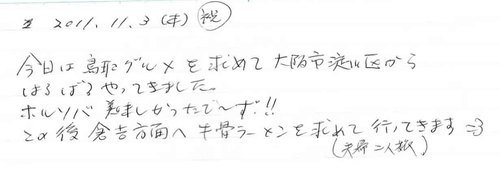 2011.11.3 (木) 祝
今日は鳥取グルメを求めて大阪市淀川区から
はるばるやってきました。
ホルソバ美味しかったで~す!!
この後倉吉方面へ牛骨ラーメンを求めて行ってきます =3
(夫婦二人旅)